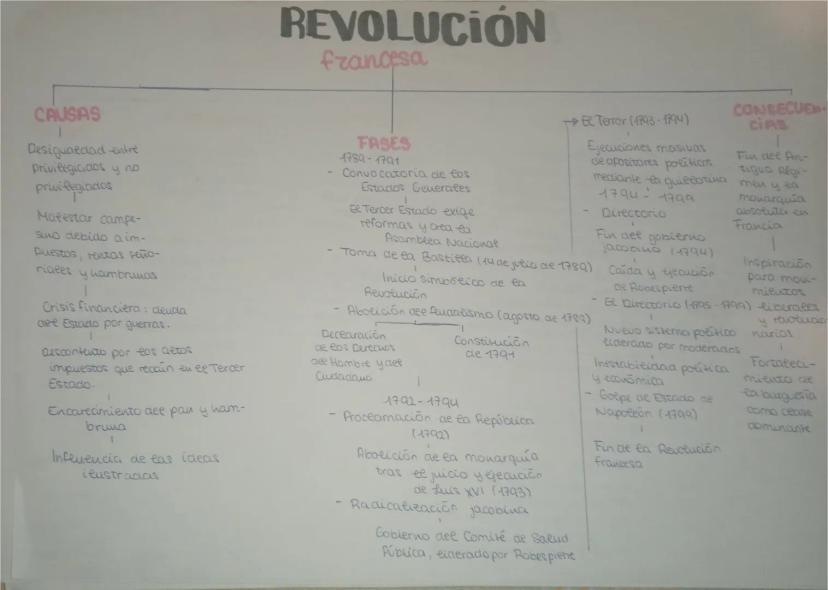 REVOLUCIÓN
francesa
CAUSAS
Desigualdad entre
privilegiados y no
privilegiados
Malestar campe-
sino debido a im-
puestos, rentas seño-
riales y hambrunas
Crisis financiera: deuda
del Estado por guerras.
Descontento por los altos
impuestos que recaín en el Tercer
Estado.
Encarecimiento del pan y ham-
bruna
Influencia de las ideas
ilustradas
FASES
1789-1791
- Convocatoria de los
Estados Generales
El Tercer Estado exige
reformas y crea la
Asamblea Nacional
- Toma de la Bastilla (14 de julio de 1789)
Inicio simbólico de la
Revolución
- Abolición del feudalismo (agosto de 1789)
Declaración
de los Derechos
del Hombre y del
Ciudadano
Constitución
de 1791
1792-1794
- Proclamación de la República
(1792)
Abolición de la monarquía
tras el juicio y ejecución
de Luis XVI (1793)
- Radicalización jacobina
Gobierno del Comité de Salud
Pública, liderado por Robespierre
→ El Terror (1793-1794)
Ejecuciones masivas
de opositores políticos
mediante la guillotina
1794-1799
- Directorio
Fin del gobierno
jacobino (1794)
Caída y ejecución
de Robespierre
- El Directorio (1795-1799)
Nuevo sistema político
liderado por moderados
Inestabilidad política
y económica
- Golpe de Estado de
Napoleón (1799)
Fin de la Revolución
francesa
CONSECUEN-
CIAS
Fin del An-
tiguo Régi-
men y la
monarquía
absoluta en
Francia
Inspiración
para movi-
mientos
liberales
y revolucio-
narios
Fortaleci-
miento de
la burguesía
como clase
dominante